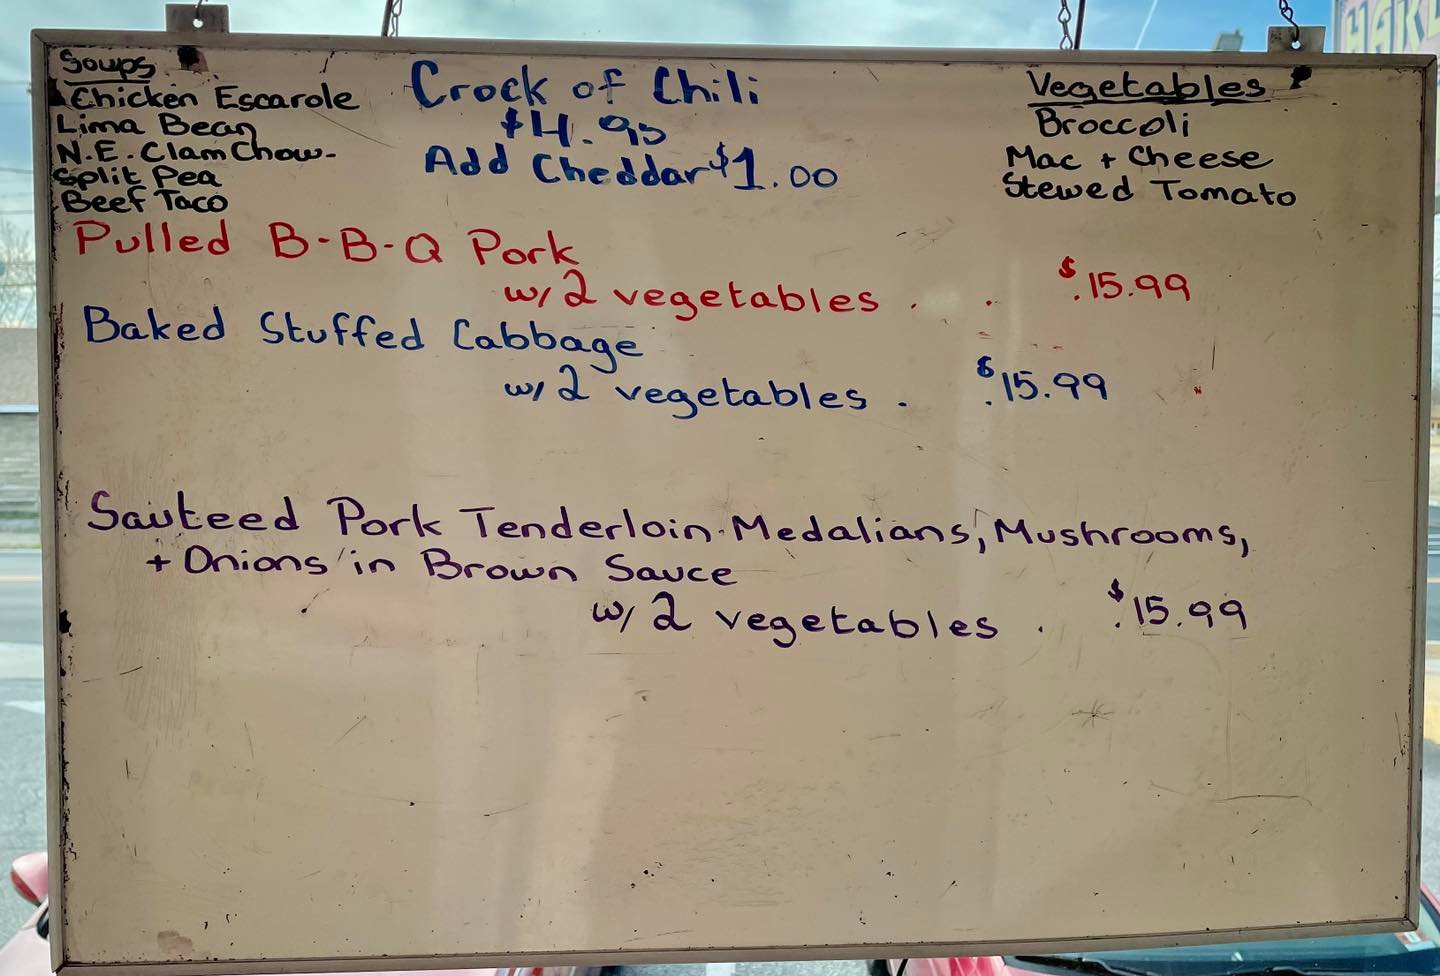 Soups
Chicken Escarole
Lima Bean
N.E. Clam Chow-
Split Pea
Beef Taco
Crock of Chili
$4.95
Add Cheddar $1.00
Vegetables
Broccoli
Mac + Cheese
Stewed Tomato
Pulled B-B-Q Pork
w/ 2 vegetables . . $.15.99
Baked Stuffed Cabbage
w/ 2 vegetables . $.15.99
Sauteed Pork Tenderloin Medalians, Mushrooms,
+ Onions in Brown Sauce
w/ 2 vegetables . $.15.99